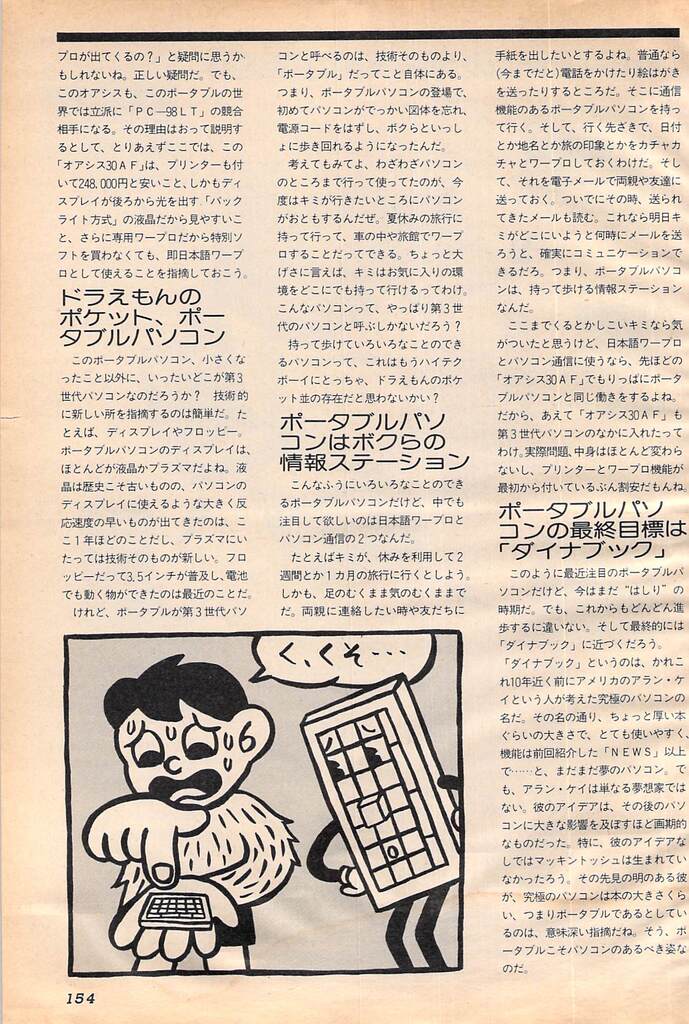 プロが出てくるの？」と疑問に思うか
もしれないね。正しい疑問だ。でも、
このオアシスも、このポータブルの世
界では立派に「PC―98LT」の競合
相手になる。その理由はおって説明す
るとして、とりあえずここでは、この
「オアシス30AF」は、プリンターも付
いて248,000円と安いこと、しかもディ
スプレイが後ろから光を出す「バック
ライト方式」の液晶だから見やすいこ
と、さらに専用ワープロだから特別ソ
フトを買わなくても、即日本語ワープ
ロとして使えることを指摘しておこう。
ドラえもんの
ポケット、ポー
タブルパソコン
このポータブルパソコン、小さくな
ったこと以外に、いったいどこが第3
世代パソコンなのだろうか？　技術的
に新しい所を指摘するのは簡単だ。た
とえば、ディスプレイやフロッピー。
ポータブルパソコンのディスプレイは、
ほとんどが液晶かプラズマだよね。液
晶は歴史こそ古いものの、パソコンの
ディスプレイに使えるような大きく反
応速度の早いものが出てきたのは、こ
こ1年ほどのことだし、プラズマにい
たっては技術そのものが新しい。フロ
ッピーだって3.5インチが普及し、電池
でも動く物ができたのは最近のことだ。
けれど、ポータブルが第3世代パソ
コンと呼べるのは、技術そのものより、
「ポータブル」だってこと自体にある。
つまり、ポータブルパソコンの登場で、
初めてパソコンがでっかい図体を忘れ、
電源コードをはずし、ボクらといっし
ょに歩き回れるようになったんだ。
考えてもみてよ、わざわざパソコン
のところまで行って使ってたのが、今
度はキミが行きたいところにパソコン
がおともするんだぜ。夏休みの旅行に
持って行って、車の中や旅館でワープ
ロすることだってできる。ちょっと大
げさに言えば、キミはお気に入りの環
境をどこにでも持って行けるってわけ。
こんなパソコンって、やっぱり第3世
代のパソコンと呼ぶしかないだろう？
持って歩けていろいろなことのでき
るパソコンって、これはもうハイテク
ボーイにとっちゃ、ドラえもんのポケ
ット並の存在だと思わないかい？
ポータブルパソ
コンはボクらの
情報ステーション
こんなふうにいろいろなことのでき
るポータブルパソコンだけど、中でも
注目して欲しいのは日本語ワープロと
パソコン通信の2つなんだ。
たとえばキミが、休みを利用して2
週間とか1カ月の旅行に行くとしよう。
しかも、足のむくまま気のむくままで
だ。両親に連絡したい時や友だちに
手紙を出したいとするよね。普通なら
(今までだと)電話をかけたり絵はがき
を送ったりするところだ。そこに通信
機能のあるポータブルパソコンを持っ
て行く。そして、行く先ざきで、日付
とか地名とか旅の印象とかをカチャカ
チャとワープロしておくわけだ。そし
て、それを電子メールで両親や友達に
送っておく。ついでにその時、送られ
てきたメールも読む。これなら明日キ
ミがどこにいようと何時にメールを送
ろうと、確実にコミュニケーションで
きるだろ。つまり、ポータブルパソコ
ンは、持って歩ける情報ステーション
なんだ。
ここまでくるとかしこいキミなら気
がついたと思うけど、日本語ワープロ
とパソコン通信に使うなら、先ほどの
「オアシス30AF」でもりっぱにポータ
ブルパソコンと同じ働きをするよね。
だから、あえて「オアシス30AF」も
第3世代パソコンのなかに入れたって
わけ。実際問題、中身はほとんど変わら
ないし、プリンターとワープロ機能が
最初から付いているぶん割安だもんね。
ポータブルパソ
コンの最終目標は
「ダイナブック」
このように最近注目のポータブルパ
ソコンだけど、今はまだ“はしり”の
時期だ。でも、これからもどんどん進
歩するに違いない。そして最終的には
「ダイナブック」に近づくだろう。
「ダイナブック」というのは、かれこ
れ10年近く前にアメリカのアラン・ケ
イという人が考えた究極のパソコンの
名だ。その名の通り、ちょっと厚い本
ぐらいの大きさで、とても使いやすく、
機能は前回紹介した「NEWS」以上
で……と、まだまだ夢のパソコン。で
も、アラン・ケイは単なる夢想家では
ない。彼のアイデアは、その後のパソ
コンに大きな影響を及ぼすほど画期的
なものだった。特に、彼のアイデアな
しではマッキントッシュは生まれてい
なかったろう。その先見の明のある彼
が、究極のパソコンは本の大きさくら
い、つまりポータブルであるとしてい
るのは、意味深い指摘だね。そう、ポ
ータブルこそパソコンのあるべき姿な
のだ。
く、くそ…
154